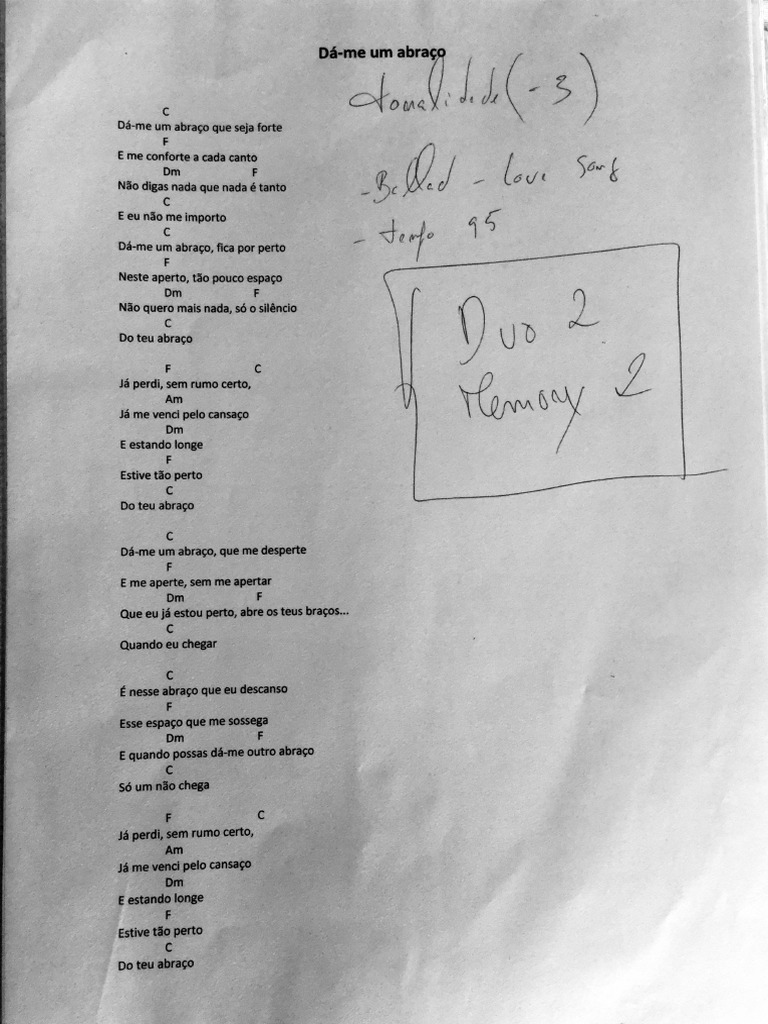 Dá-me um abraço
tonalidade (-3)
- Ballad - Love Song
- tempo 95
Duo 2
Memory 2
C
Dá-me um abraço que seja forte
F
E me conforte a cada canto
Dm F
Não digas nada que nada é tanto
C
E eu não me importo
C
Dá-me um abraço, fica por perto
F
Neste aperto, tão pouco espaço
Dm F
Não quero mais nada, só o silêncio
C
Do teu abraço
F C
Já perdi, sem rumo certo,
Am
Já me venci pelo cansaço
Dm
E estando longe
F
Estive tão perto
C
Do teu abraço
C
Dá-me um abraço, que me desperte
F
E me aperte, sem me apertar
Dm F
Que eu já estou perto, abre os teus braços...
C
Quando eu chegar
C
É nesse abraço que eu descanso
F
Esse espaço que me sossega
Dm F
E quando possas dá-me outro abraço
C
Só um não chega
F C
Já perdi, sem rumo certo,
Am
Já me venci pelo cansaço
Dm
E estando longe
F
Estive tão perto
C
Do teu abraço